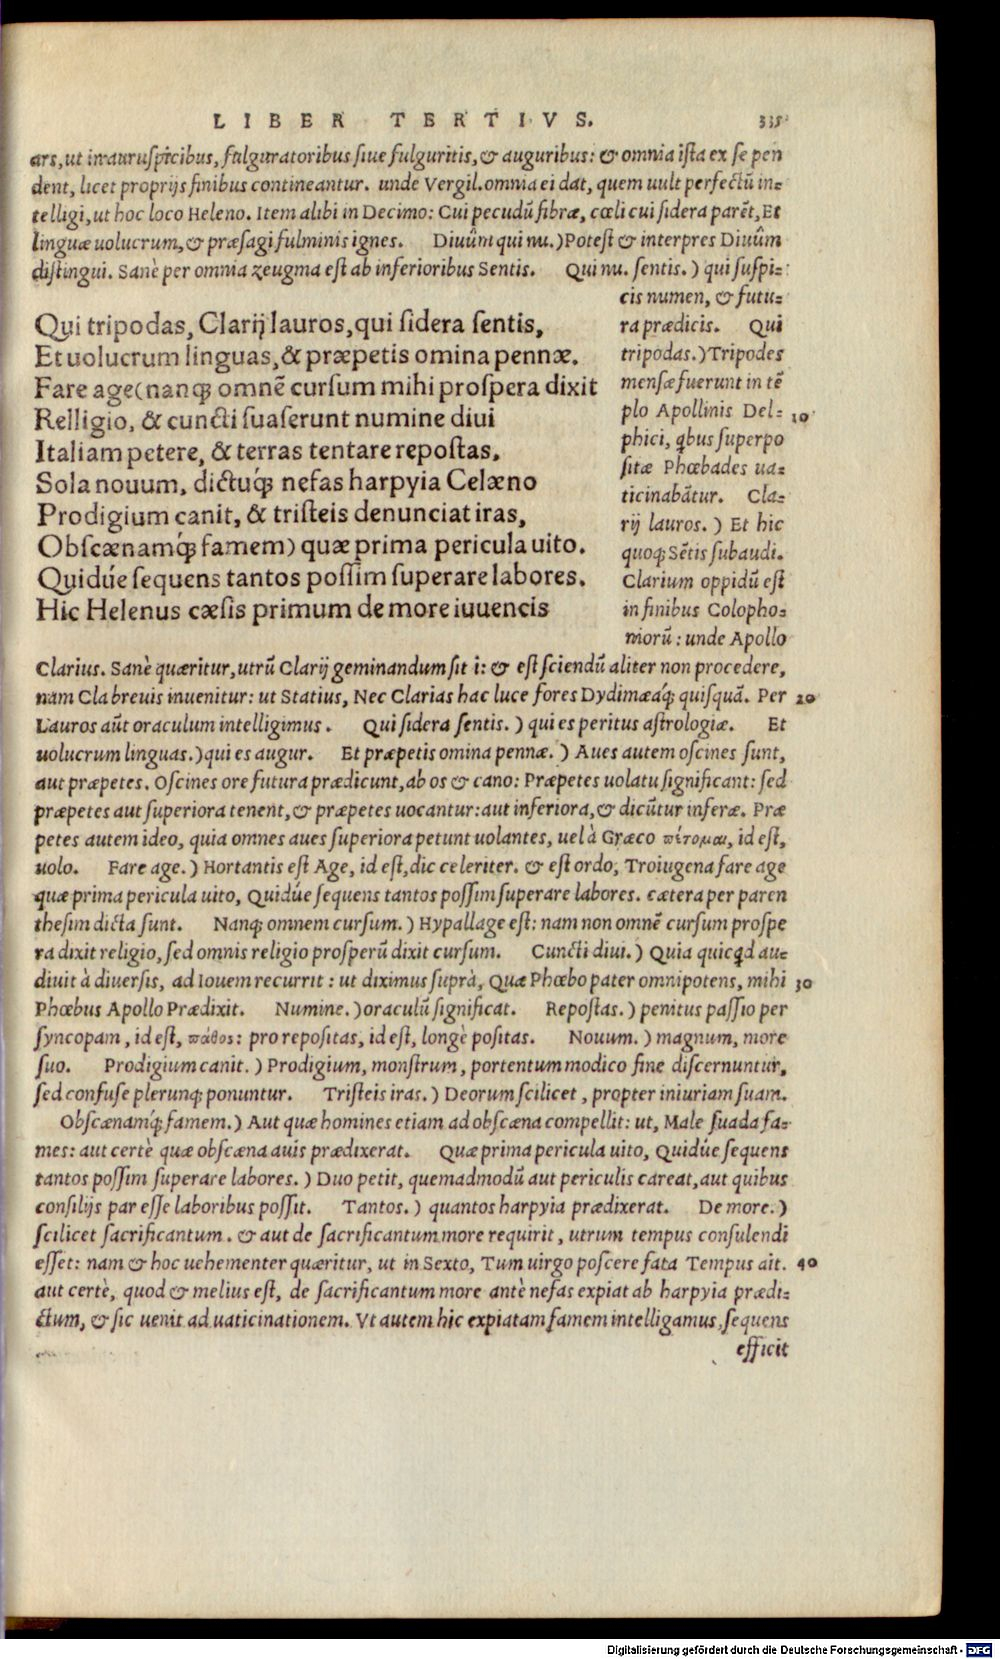 LIBER TERTIVS. 335
ars, ut in auruspicibus, fulguratoribus siue fulguritis, & auguribus: & omnia ista ex se pen
dent, licet proprijs finibus contineantur. unde Vergil. omnia ei dat, quem uult perfectū in=
telligi, ut hoc loco Heleno. Item alibi in Decimo: Cui pecudū fibræ, cœli cui sidera parēt, Et
linguæ uolucrum, & præsagi fulminis ignes. Diuûm qui nu.) Potest & interpres Diuûm
distingui. Sanè per omnia zeugma est ab inferioribus Sentis. Qui nu. sentis.) qui suspi=
cis numen, & futu=
ra prædicis. Qui
tripodas.) Tripodes
mensæ fuerunt in tē
plo Apollinis Del= 10
phici, qbus superpo
sitæ Phœbades ua=
ticinabātur. Cla=
rij lauros.) Et hic
quoq; Sētis subaudi.
Clarium oppidū est
in finibus Colopho=
niorū: unde Apollo
Qui tripodas, Clarij lauros, qui sidera sentis,
Et uolucrum linguas, & præpetis omina pennæ.
Fare age (nanq; omnē cursum mihi prospera dixit
Relligio, & cuncti suaserunt numine diui
Italiam petere, & terras tentare repostas.
Sola nouum, dictuq́; nefas harpyia Celæno
Prodigium canit, & tristeis denunciat iras,
Obscænamq́; famem) quæ prima pericula uito.
Quidúe sequens tantos possim superare labores.
Hic Helenus cæsis primum de more iuuencis
Clarius. Sanè quæritur, utrū Clarij geminandum sit i: & est sciendū aliter non procedere,
nam Cla breuis inuenitur: ut Statius, Nec Clarias hac luce fores Dydimæaq́; quisquā. Per 20
Lauros aūt oraculum intelligimus. Qui sidera sentis.) qui es peritus astrologiæ. Et
uolucrum linguas.) qui es augur. Et præpetis omina pennæ.) Aues autem oscines sunt,
aut præpetes. Oscines ore futura prædicunt, ab os & cano: Præpetes uolatu significant: sed
præpetes aut superiora tenent, & præpetes uocantur: aut inferiora, & dicūtur inferæ. Præ
petes autem ideo, quia omnes aues superiora petunt uolantes, uel à Græco πέτομαι, id est,
uolo. Fare age.) Hortantis est Age, id est, dic celeriter. & est ordo, Troiugena fare age
quæ prima pericula uito, Quidúe sequens tantos possim superare labores. cætera per paren
thesim dicta sunt. Nanq; omnem cursum.) Hypallage est: nam non omnē cursum prospe
ra dixit religio, sed omnis religio prosperū dixit cursum. Cuncti diui.) Quia quicqd au=
diuit à diuersis, ad Iouem recurrit: ut diximus suprà, Quæ Phœbo pater omnipotens, mihi 30
Phœbus Apollo Prædixit. Numine.) oraculū significat. Repostas.) penitus passio per
syncopam, id est, πάθος: pro repositas, id est, longè positas. Nouum.) magnum, more
suo. Prodigium canit.) Prodigium, monstrum, portentum modico fine discernuntur,
sed confuse plerunq; ponuntur. Tristeis iras.) Deorum scilicet, propter iniuriam suam.
Obscænamq́; famem.) Aut quæ homines etiam ad obscæna compellit: ut, Male suada fa=
mes: aut certè quæ obscæna auis prædixerat. Quæ prima pericula uito, Quidúe sequens
tantos possim superare labores.) Duo petit, quemadmodū aut periculis careat, aut quibus
consilijs par esse laboribus possit. Tantos.) quantos harpyia prædixerat. De more.)
scilicet sacrificantum. & aut de sacrificantum more requirit, utrum tempus consulendi
esset: nam & hoc uehementer quæritur, ut in Sexto, Tum uirgo poscere fata Tempus ait. 40
aut certè, quod & melius est, de sacrificantum more antè nefas expiat ab harpyia prædi=
ctum, & sic uenit ad uaticinationem. Vt autem hic expiatam famem intelligamus, sequens
efficit
Digitalisierung gefördert durch die Deutsche Forschungsgemeinschaft - DFG